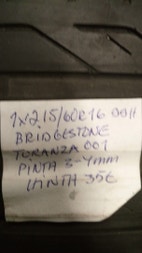 1x215/60R16 99H
BRIDGESTONE
TURANZA 001
PINTA 3-4mm
HINTA 35€